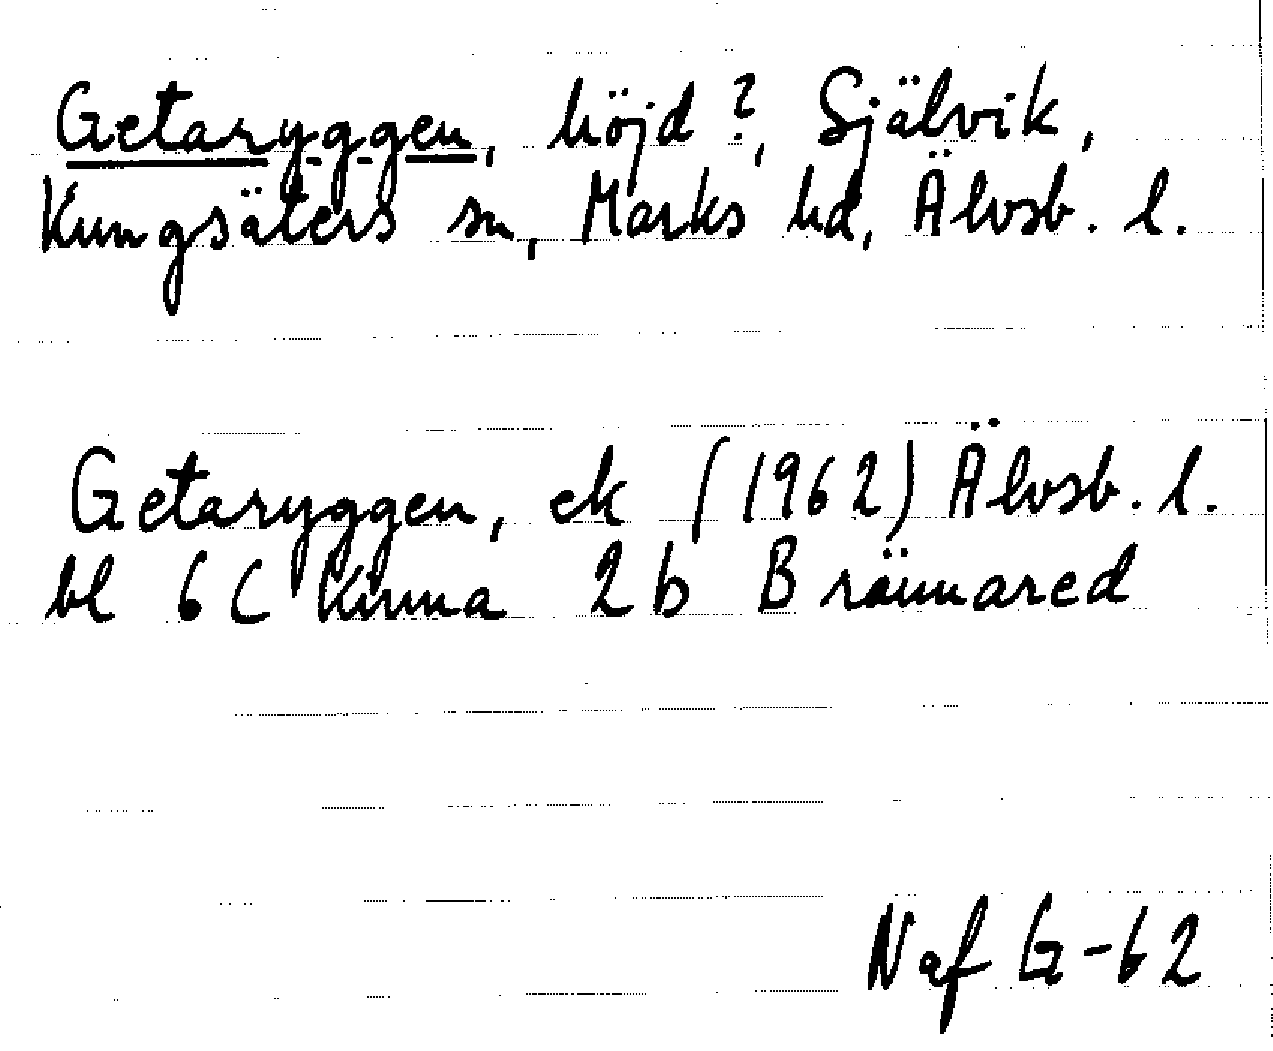 Getaryggen, höjd ?, Självik,
Kungsäters sn, Marks hd, Älvsb. l.
Getaryggen, ek (1962) Älvsb. l.
bl 6 C Kinna 2 b Brännared
Naf G-62